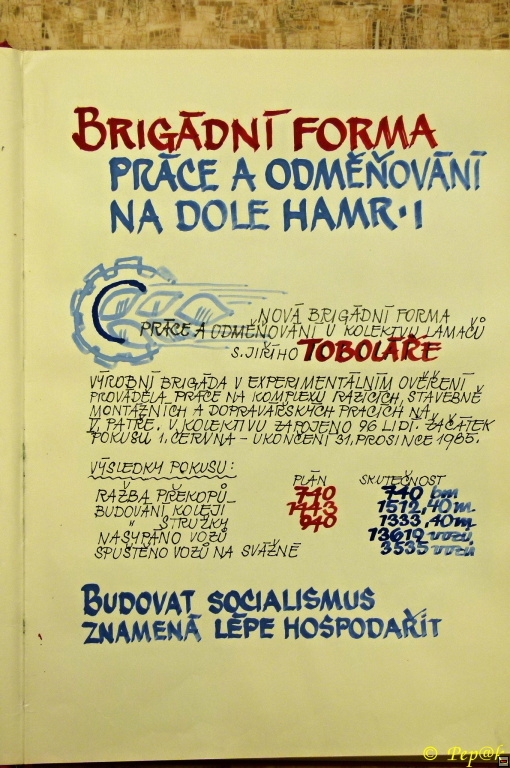 BRIGÁDNÍ FORMA
PRÁCE A ODMĚŇOVÁNÍ
NA DOLE HAMR·I
NOVÁ BRIGÁDNÍ FORMA
PRÁCE A ODMĚŇOVÁNÍ U KOLEKTIVU LAMAČŮ
S. JIŘÍHO TOBOLÁŘE
VÝROBNÍ BRIGÁDA V EXPERIMENTÁLNÍM OVĚŘENÍ
PROVÁDĚLA PRÁCE NA KOMPLEXU RAZÍCÍCH, STAVEBNĚ
MONTÁŽNÍCH A DOPRAVÁŘSKÝCH PRACÍCH NA
V. PATŘE. V KOLEKTIVU ZAPOJENO 96 LIDÍ. ZAČÁTEK
POKUSU 1. ČERVNA - UKONČENÍ 31. PROSINCE 1985.
VÝSLEDKY POKUSU: PLÁN SKUTEČNOST
RAŽBA PŘEKOPŮ 710 740 bm
BUDOVÁNÍ KOLEJÍ 1443 1512,40 m
" STRUŽKY 940 1333,40 m
NASYPÁNO VOZŮ 13619 vozů
SPUŠTĚNO VOZŮ NA SVÁŽNĚ 3535 vozů
BUDOVAT SOCIALISMUS
ZNAMENÁ LÉPE HOSPODAŘIT
© Pep@k